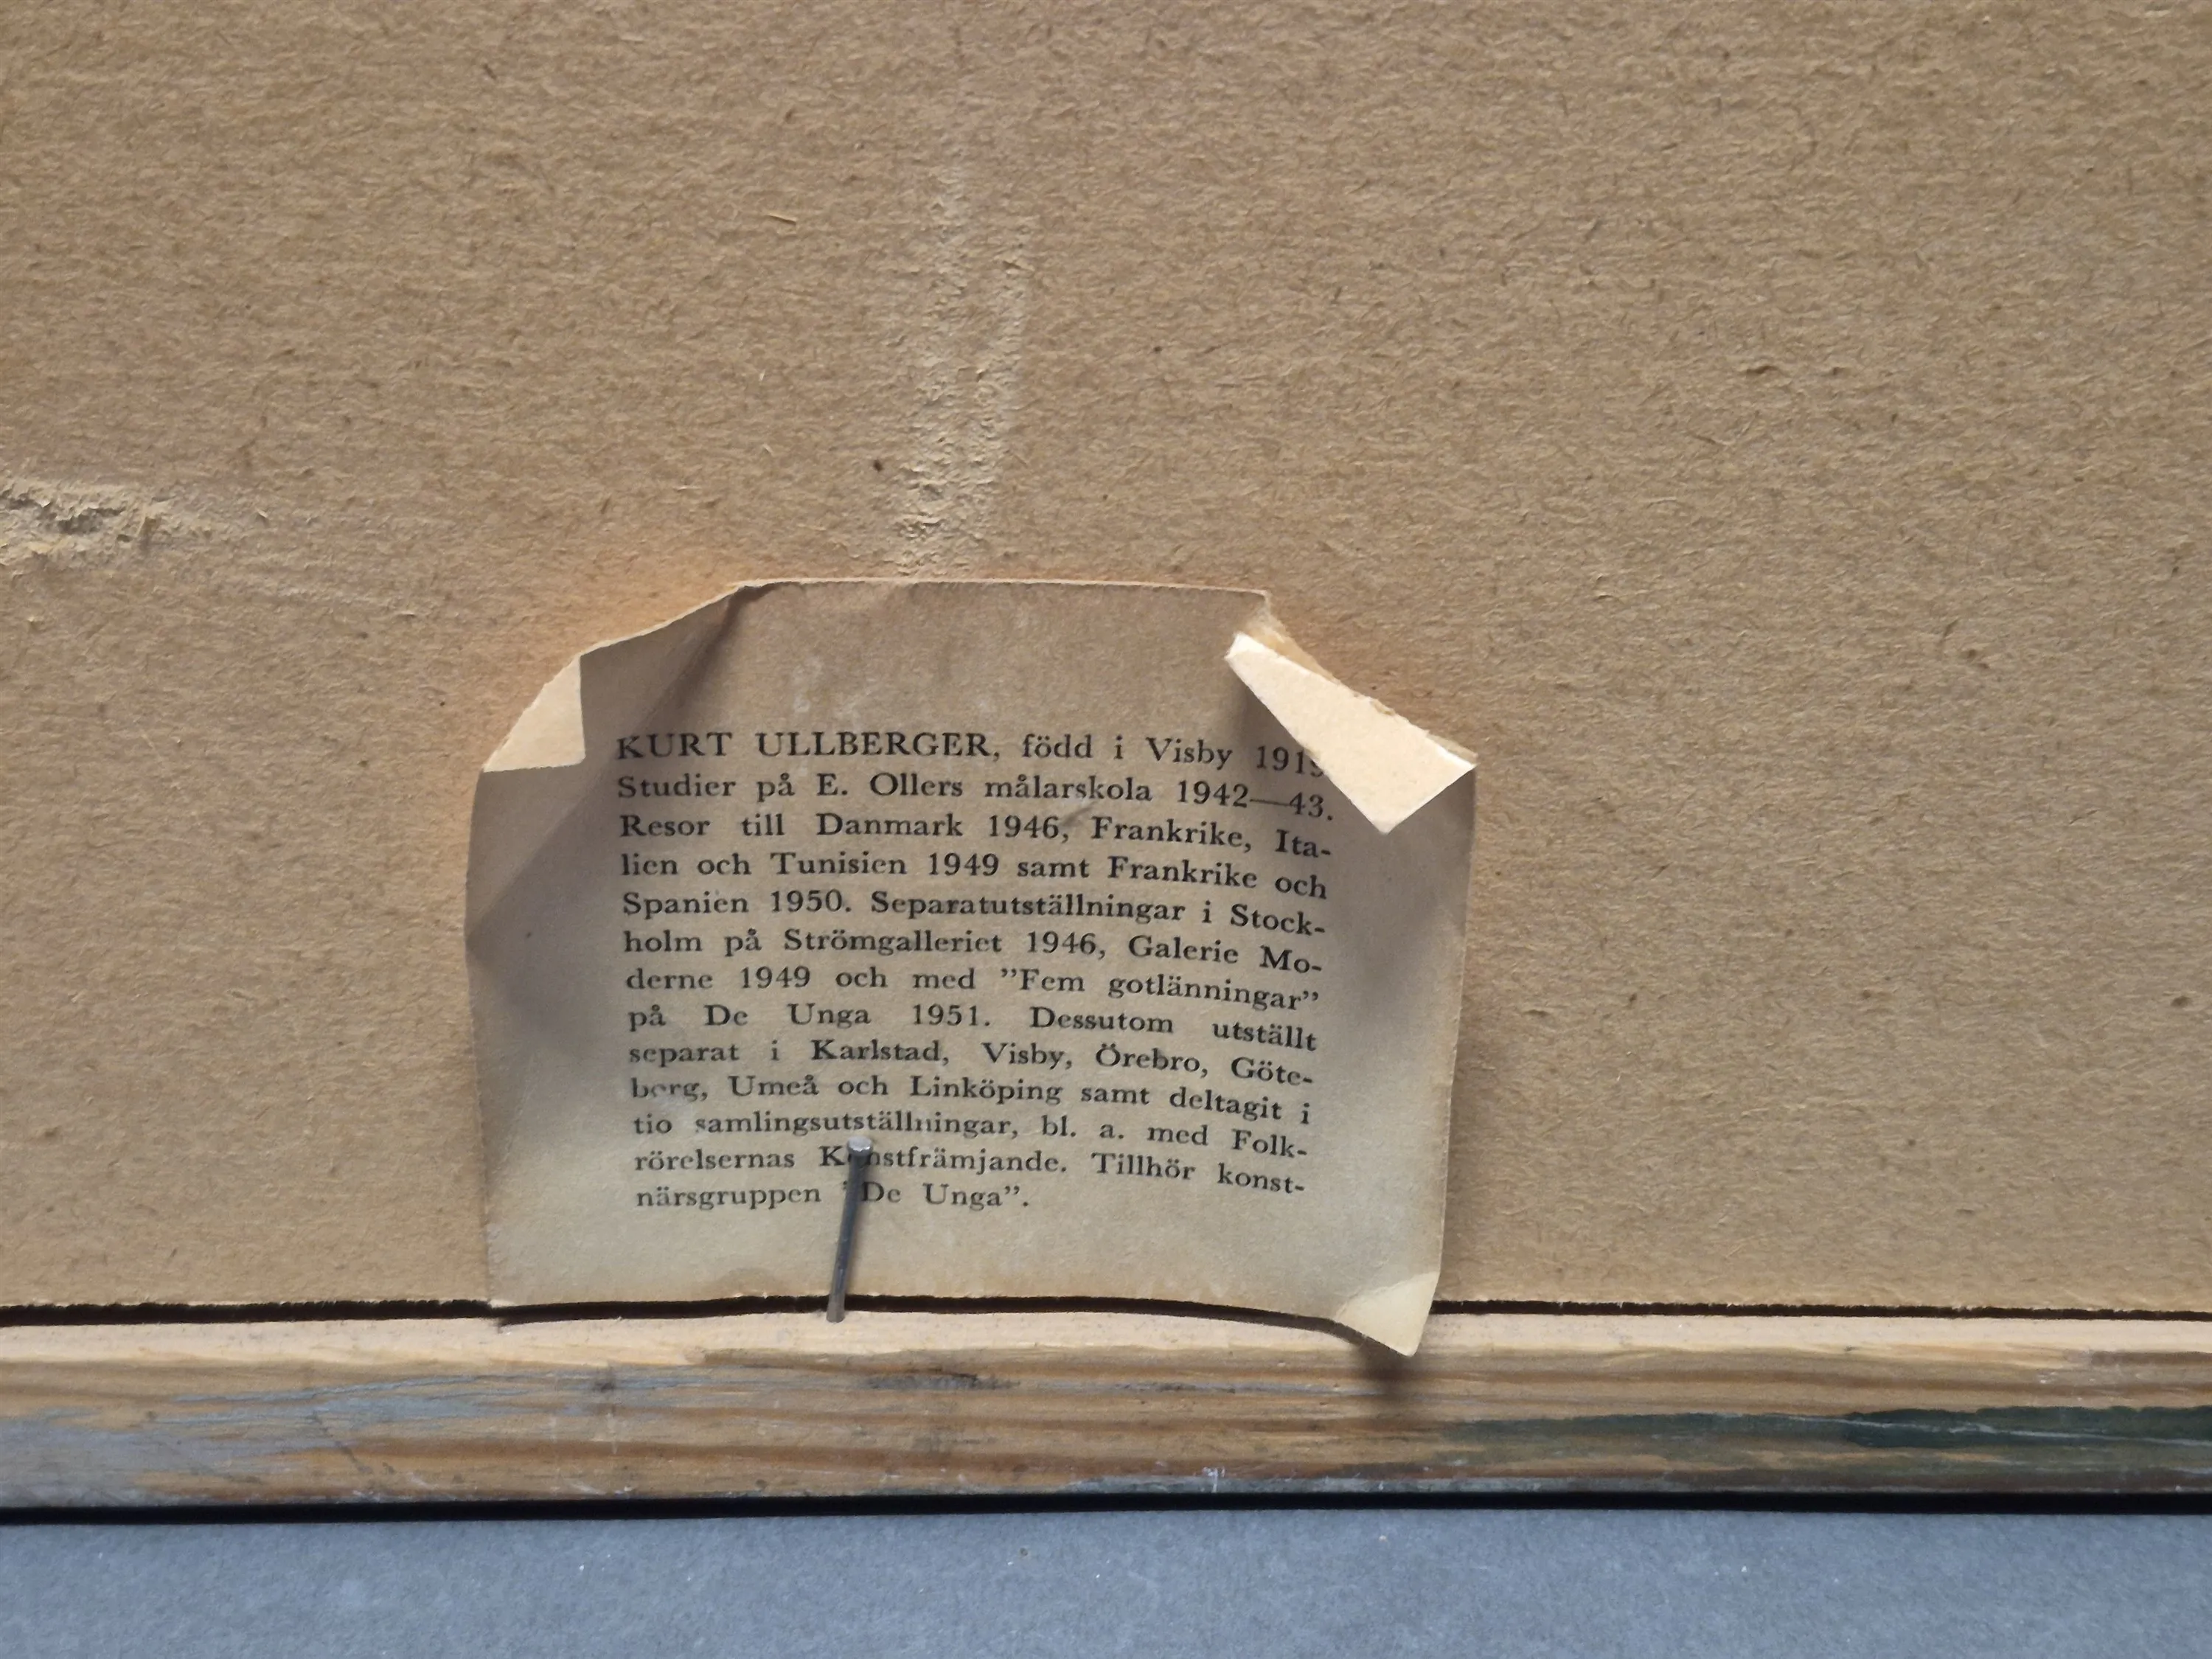 KURT ULLBERGER, född i Visby
Studier på E. Ollers målarskola 1942—43.
Resor till Danmark 1946, Frankrike, Ita-
lien och Tunisien 1949 samt Frankrike och
Spanien 1950. Separatutställningar i Stock-
holm på Strömgalleriet 1946, Galerie Mo-
derne 1949 och med ”Fem gotlänningar”
på De Unga 1951. Dessutom utställt
separat i Karlstad, Visby, Örebro, Göte-
borg, Umeå och Linköping samt deltagit i
tio samlingsutställningar, bl. a. med Folk-
rörelsernas Konstfrämjande. Tillhör konst-
närsgruppen ”De Unga”.